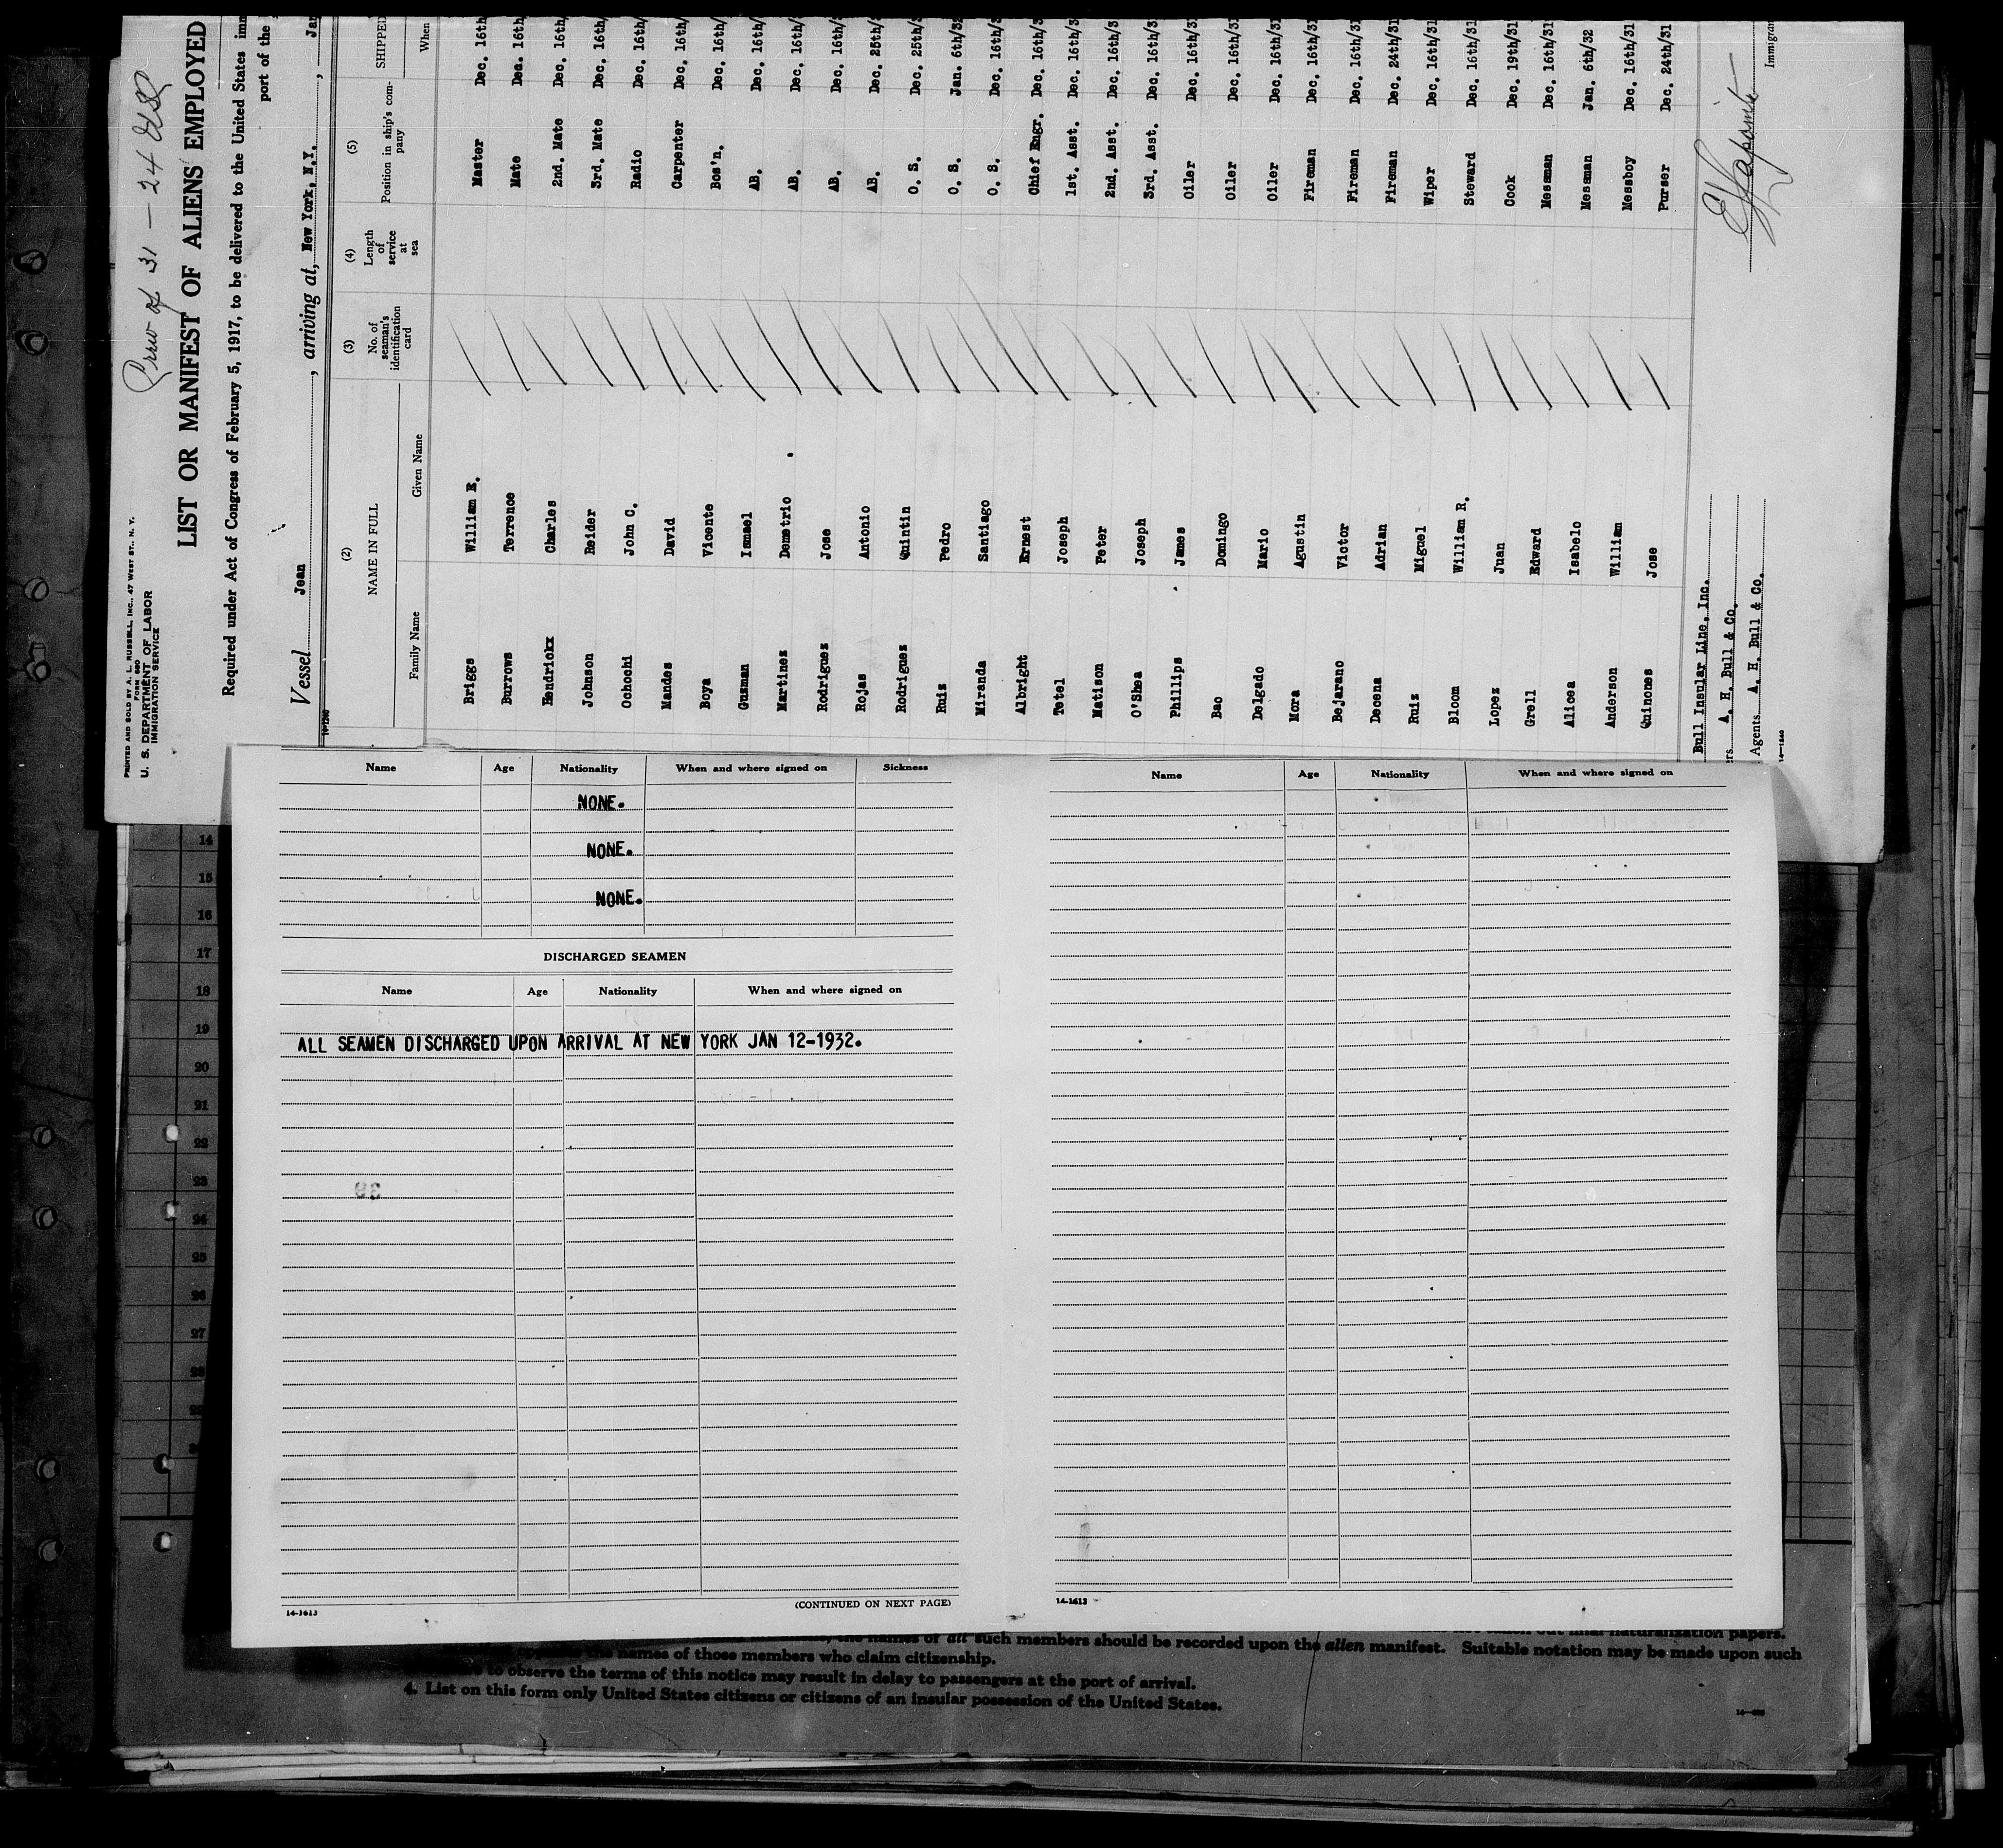 PRINTED AND SOLD BY A. L. RUSSELL, INC., 47 WEST ST., N. Y.
FORM 680
U. S. DEPARTMENT OF LABOR
IMMIGRATION SERVICE
Crew of 31 — 24 USC
LIST OR MANIFEST OF ALIENS EMPLOYED
Required under Act of Congress of February 5, 1917, to be delivered to the United States imm
port of the
Vessel Jean, arriving at, New York, N.Y., Jan
(2) (3) (4) (5)
NAME IN FULL No. of seaman's identification card Length of service at sea Position in ship's company SHIPPED
Family Name Given Name When
Briggs William E. Master Dec. 16th
Burrows Terrence Mate Dec. 16th
Hendrickx Charles 2nd. Mate Dec. 16th/
Johnson Reider 3rd. Mate Dec. 16th/
Ochochi John C. Radio Dec. 16th/
Mandes David Carpenter Dec. 16th/
Boya Vicente Bos'n. Dec. 16th/
Guzman Ismael AB. Dec. 16th/
Martinez Demetrio AB. Dec. 16th/
Rodriguez Jose AB. Dec. 16th/
Rojas Antonio AB. Dec. 25th/
Rodriguez Quintin O. S. Dec. 25th/
Ruiz Pedro O. S. Jan. 6th/32
Miranda Santiago O. S. Dec. 16th/3
Albright Ernest Chief Engr. Dec. 16th/3
Tetel Joseph 1st. Asst. Dec. 16th/3
Matison Peter 2nd. Asst. Dec. 16th/3
O'Shea Joseph 3rd. Asst. Dec. 16th/31
Phillips James Oiler Dec. 16th/31
Bao Domingo Oiler Dec. 16th/31
Delgado Mario Oiler Dec. 16th/31
Mora Agustin Fireman Dec. 16th/31
Bejarano Victor Fireman Dec. 16th/31
Decena Adrian Fireman Dec. 24th/31
Ruiz Miguel Wiper Dec. 16th/31
Bloom William R. Steward Dec. 16th/31
Lopez Juan Cook Dec. 19th/31
Grell Edward Messman Dec. 16th/31
Alicea Isabelo Messman Jan. 6th/32
Anderson William Messboy Dec. 16th/31
Quinones Jose Purser Dec. 24th/31
Bull Insular Line, Inc.
rs A. H. Bull & Co.
Agents A. H. Bull & Co.
Immigran
14-1240
Name Age Nationality When and where signed on Sickness
NONE.
NONE.
NONE.
DISCHARGED SEAMEN
Name Age Nationality When and where signed on
ALL SEAMEN DISCHARGED UPON ARRIVAL AT NEW YORK JAN 12-1932.
(CONTINUED ON NEXT PAGE)
14-1613
Name Age Nationality When and where signed on
14-1613
14
15
16
17
18
19
20
21
22
23
24
25
26
27
28
the names of all such members should be recorded upon the alien manifest. Suitable notation may be made upon such
the names of those members who claim citizenship.
to observe the terms of this notice may result in delay to passengers at the port of arrival.
4. List on this form only United States citizens or citizens of an insular possession of the United States.